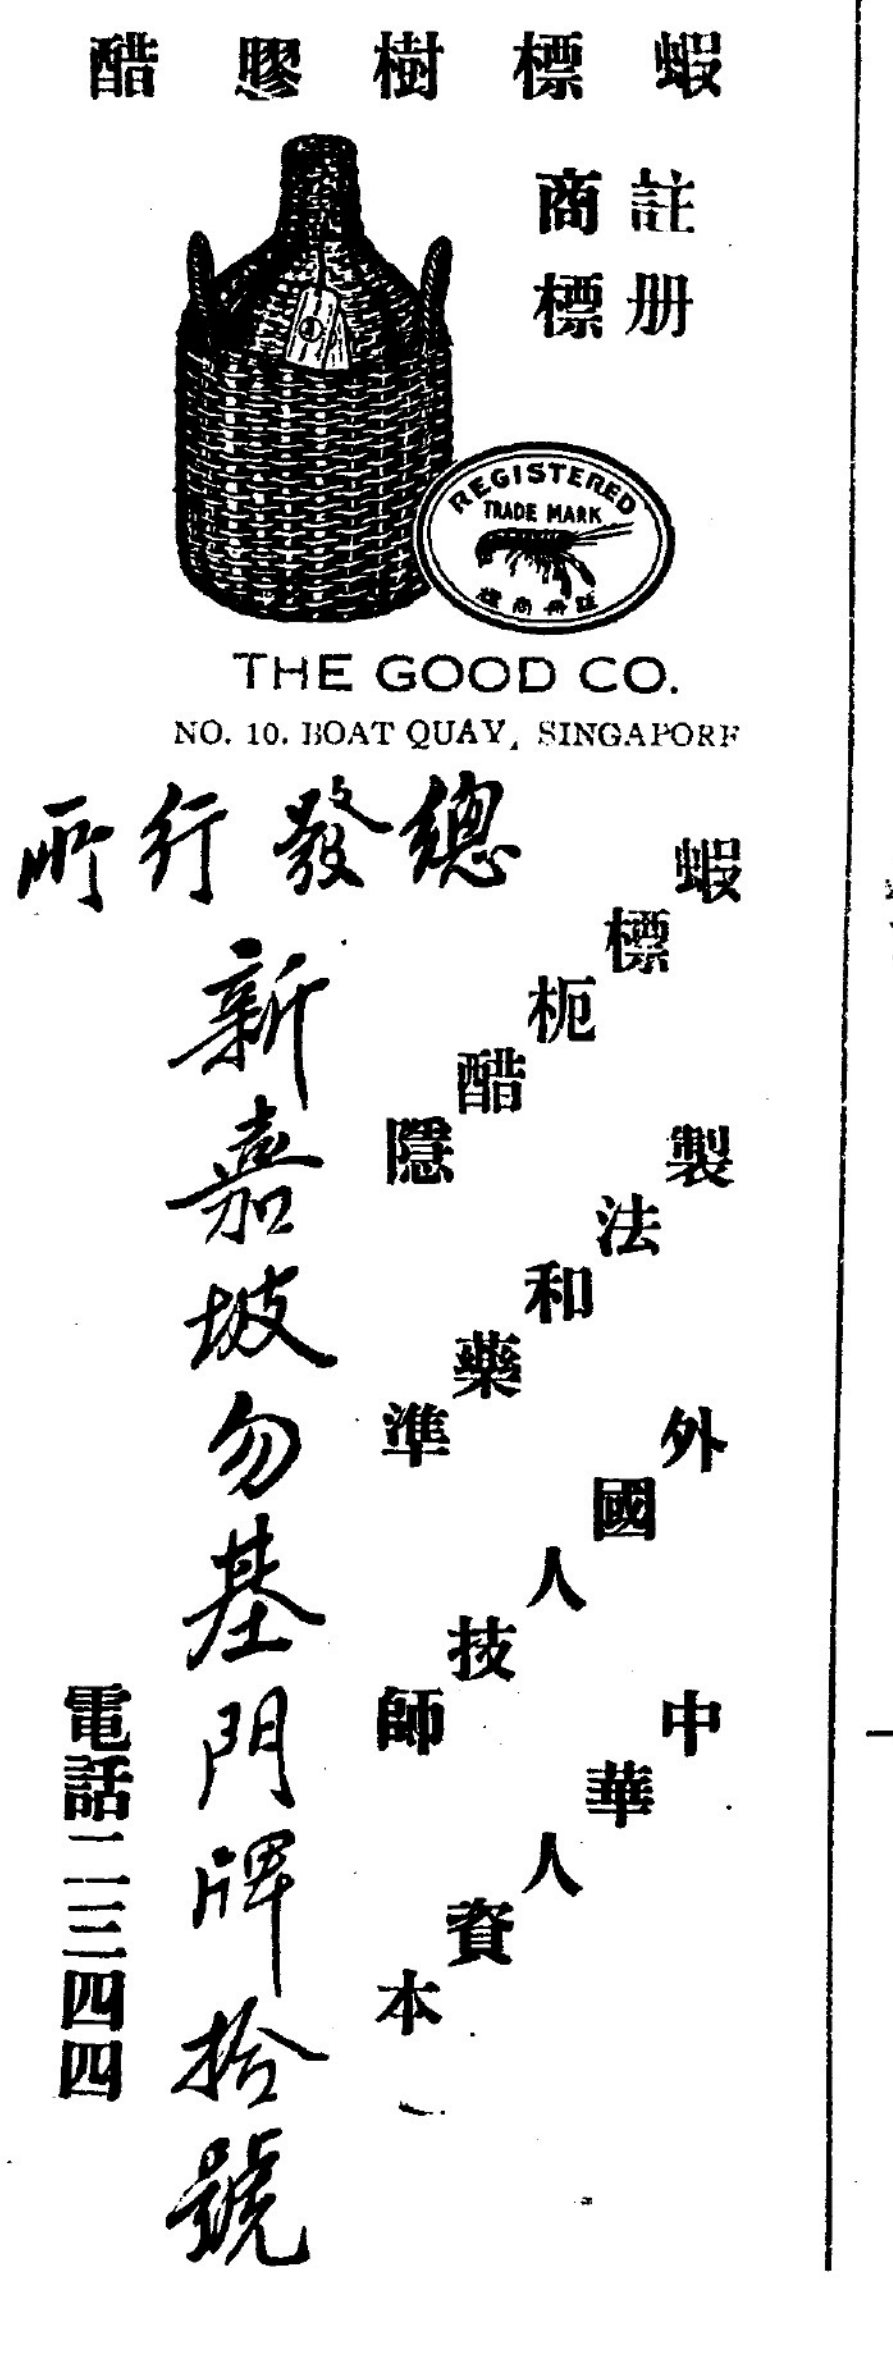 蝦標樹膠醋
註册
商標
REGISTERED
TRADE MARK
註冊商標
THE GOOD CO.
NO. 10. BOAT QUAY, SINGAPORE
總發行所
蝦標枙醋隱
製法和藥準
外國人技師
中華人資本
新嘉坡勿基門牌拾號
電話二三四四